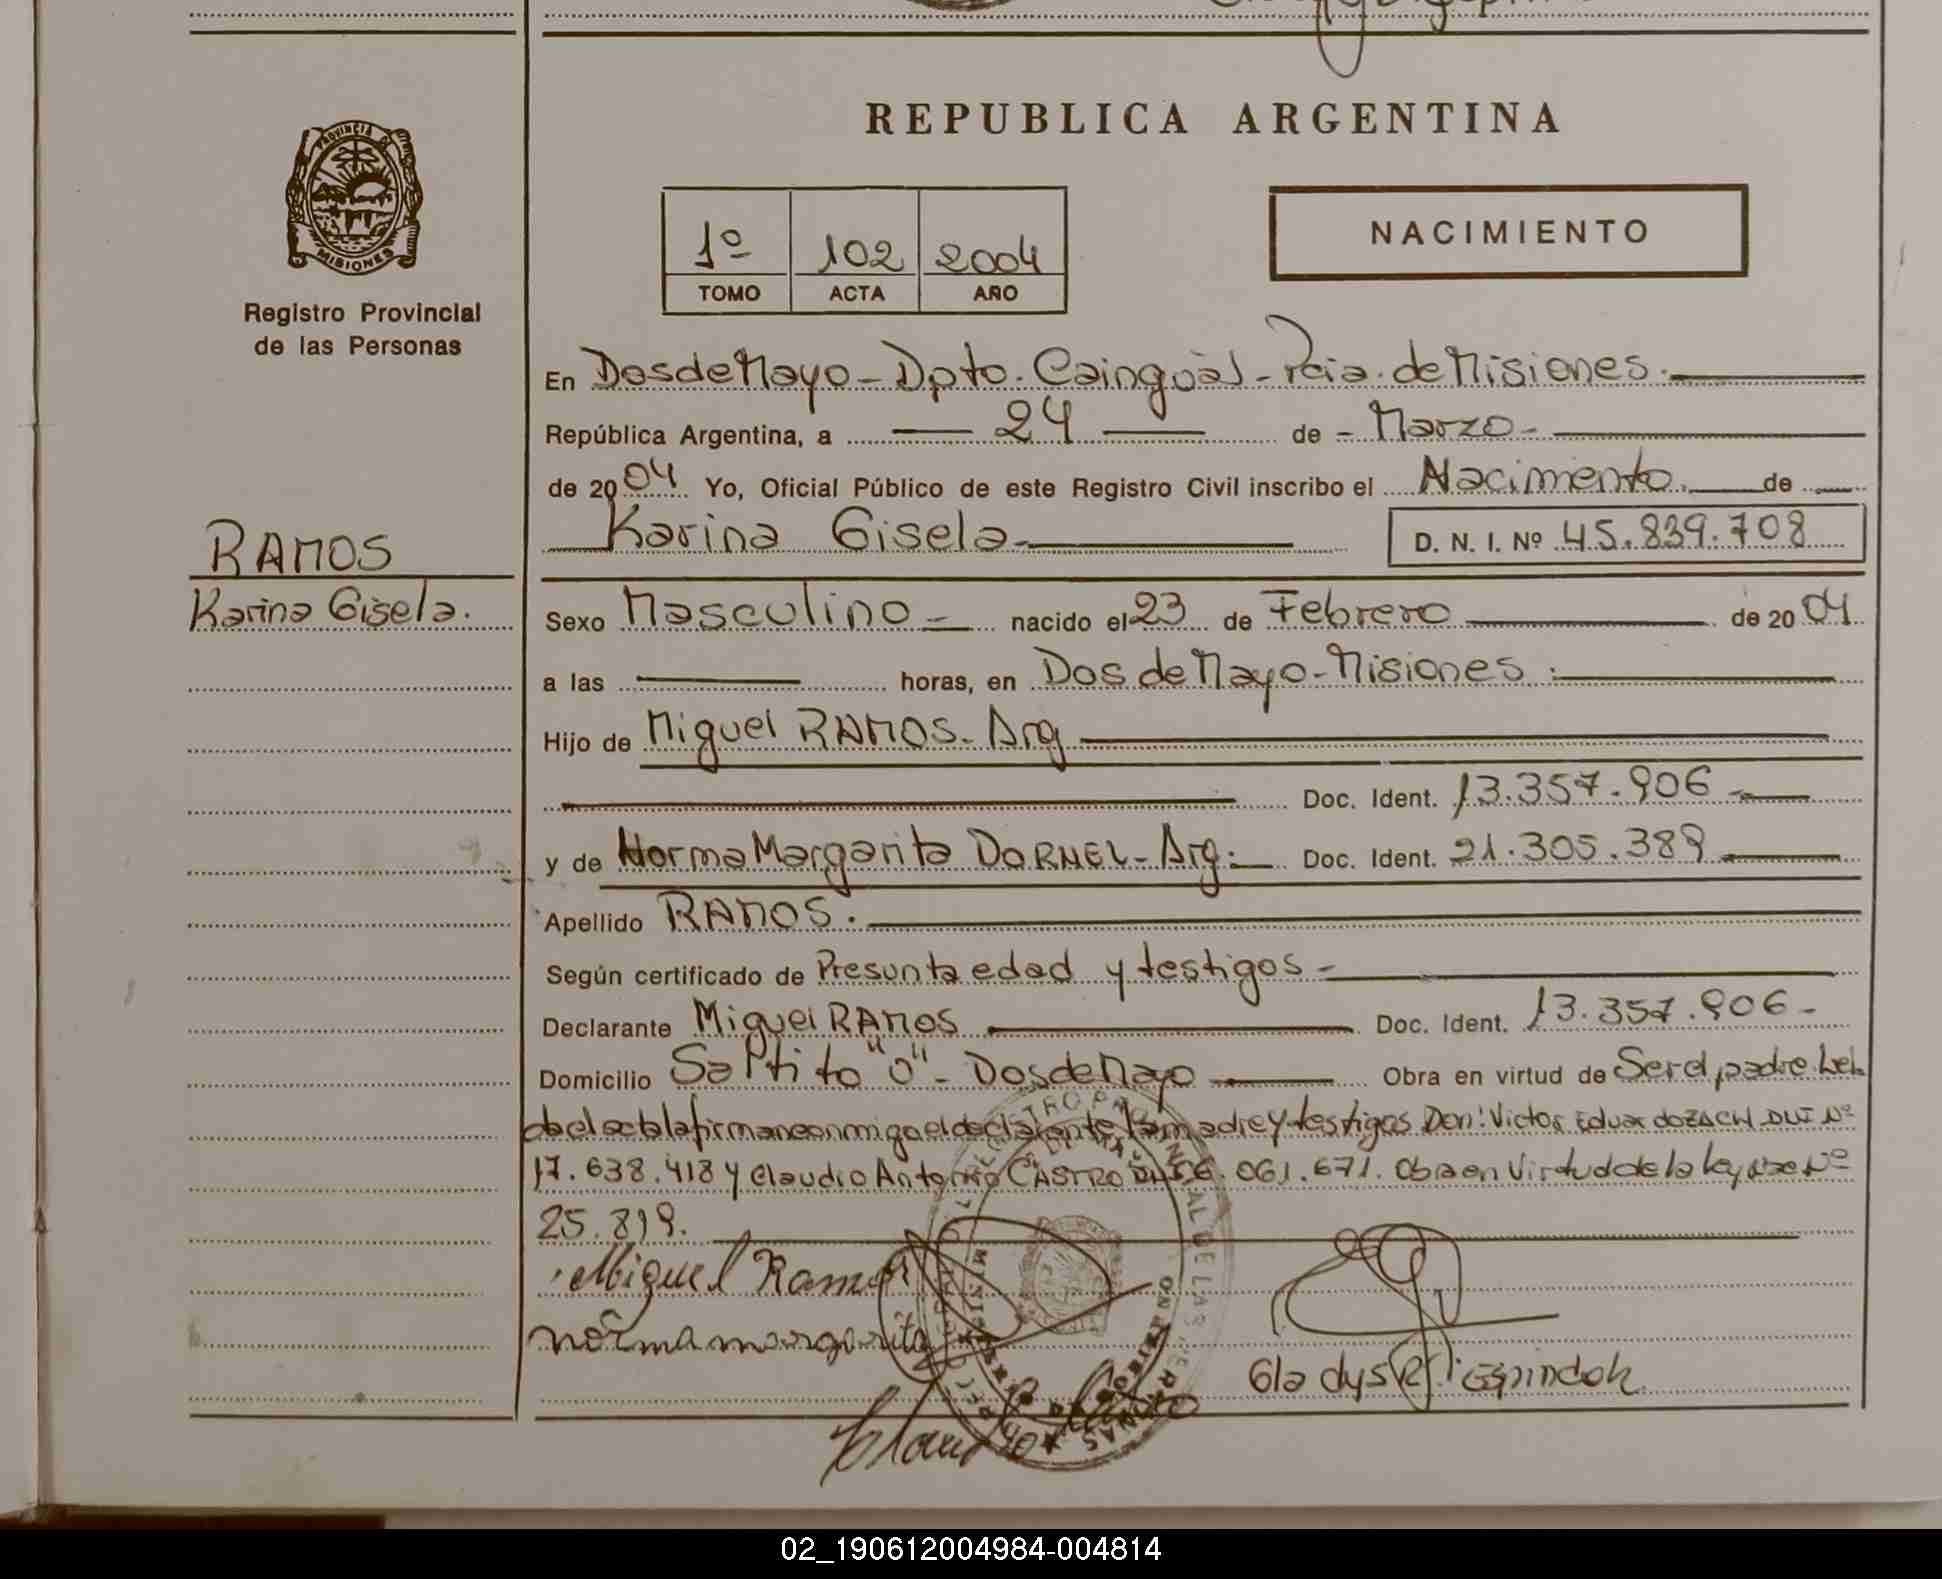 REPUBLICA ARGENTINA
PROVINCIA DE
MISIONES
Registro Provincial
de las Personas
1º 102 2004
TOMO ACTA AÑO
NACIMIENTO
En Dos de Mayo - Dpto. Cainguás - Pcia. de Misiones.
República Argentina, a 24 de - Marzo -
de 2004 Yo, Oficial Público de este Registro Civil inscribo el Nacimiento. de
Karina Gisela - D. N. I. Nº 45.839.708
RAMOS
Karina Gisela.
Sexo Masculino - nacido el 23 de Febrero de 2004
a las horas, en Dos de Mayo - Misiones.
Hijo de Miguel RAMOS - Arg
Doc. Ident. 13.357.906 -
y de Norma Margarita DORNEL - Arg. Doc. Ident. 21.305.389
Apellido RAMOS.
Según certificado de Presunta edad y testigos -
Declarante Miguel RAMOS Doc. Ident. 13.357.906 -
Domicilio Saltito "O" - Dos de Mayo Obra en virtud de Ser el padre. Leí
da el acta la firman conmigo el declarante la madre y testigos Don: Victor Eduardo ZACH DNI Nº
17.638.418 y Claudio Antonio CASTRO 061.671. Obra en Virtud de la ley Nº
25.819.
Miguel Ramos
norma margarita
Gladys Espindola
Claudio
02_190612004984-004814